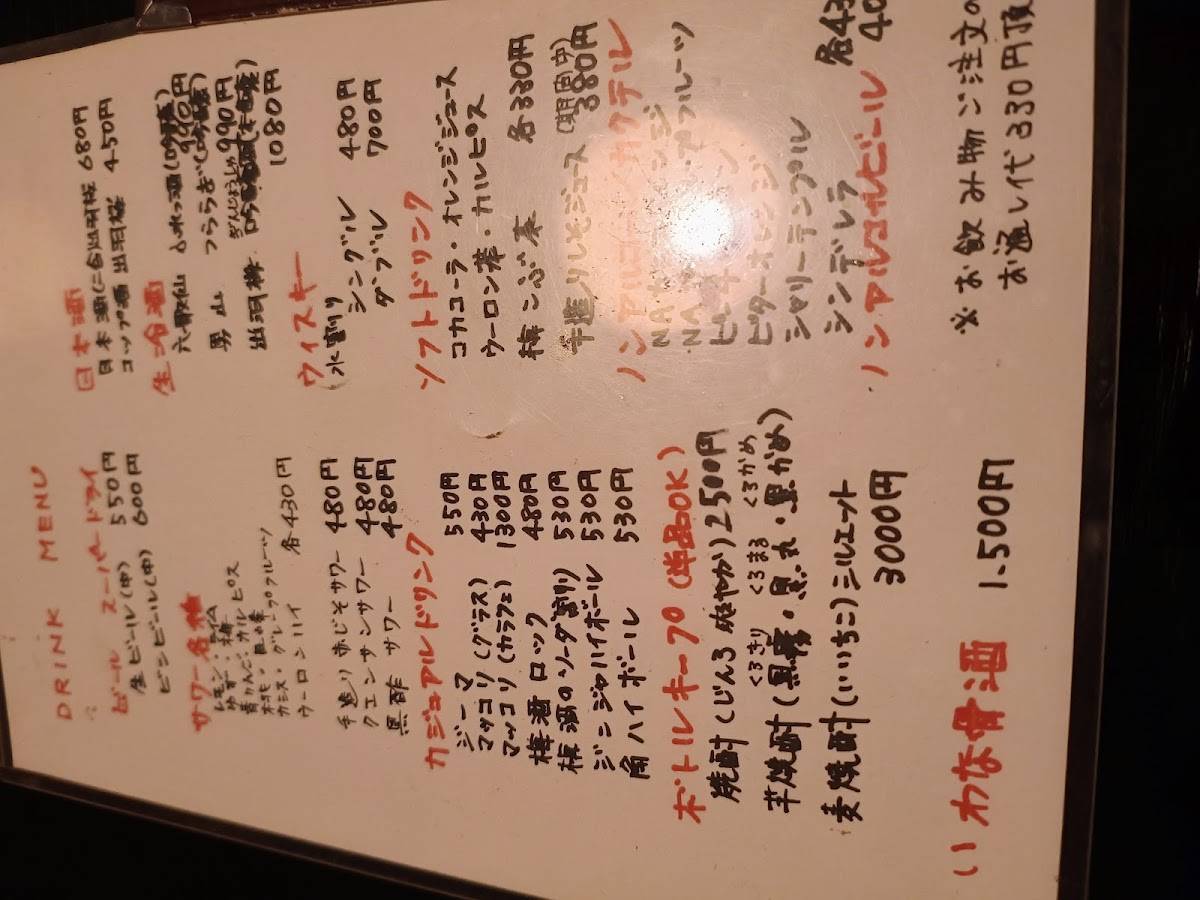 DRINK MENU
ビール スーパードライ
生ビール(中) 550円
ビンビール(中) 600円
サワー各種
レモン・ライム
ゆず・梅
青りんご・カルピス
巨峰
カシス・グレープフルーツ
ウーロンハイ 各430円
手造り赤じそサワー 480円
クエンサンサワー 480円
黒酢サワー 480円
カジュアルドリンク
ジーマ 550円
マッコリ(グラス) 430円
マッコリ(カラフェ) 1300円
梅酒ロック 480円
梅酒のソーダ割り 530円
ジンジャハイボール 530円
角ハイボール 530円
ボトルキープ(単品OK)
焼酎(じんろ爽やか) 2500円
くろきり くろまる くろかめ
芋焼酎(黒霧・黒丸・黒かめ)
麦焼酎(いいちこ)シルエット
3000円
いわな骨酒 1.500円
日本酒
日本酒(二合)出羽桜 680円
コップ酒 出羽桜 450円
生冷酒
六歌仙 ふれっ酒(吟醸) 990円
男山 つららぎ(吟醸) 990円
出羽桜 1080円
ウィスキー
(水割り シングル 480円
ダブル 700円
ソフトドリンク
コカコーラ・オレンジジュース
ウーロン茶・カルピス
梅こぶ茶 各330円
(期間中)
手造りしそジュース 380円
ノンアルコールカクテル
NA
NA
ビターオレンジ
シャリーテンプル
シンデレラ 各43
ノンアルコールビール 40
※お飲み物ご注文の
お通し代330円頂